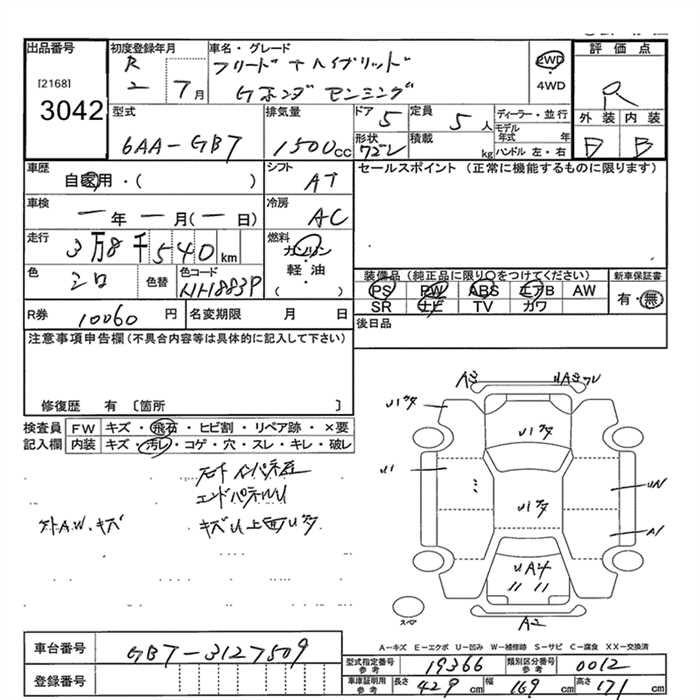 出品番号
[2168]
3042
初度登録年月
R
2 7月
車名・グレード
フリード+ハイブリッド
Gホンダセンシング
2WD
4WD
評価点
R
外装 内装
D B
型式
6AA-GB7
排気量
1500cc
ドア 5
形状
定員 5人
積載 kg
ディーラー・並行
モデル年式 年
ハンドル 左・右
車歴
自家用・( )
シフト
AT
セールスポイント(正常に機能するものに限ります)
車検
一年 一月(一日)
冷房
AC
走行
3万8千540km
燃料
ガソリン
軽・油
( ・ )
色
シロ
色替
色コード
NH883P
装備品(純正品に限り○をつけてください)
PS PW ABS エアB AW
SR ナビ TV カワ
新車保証書
有・無
R券 10060円
名変期限 月 日
後日品
注意事項申告欄(不具合内容等は具体的に記入して下さい)
修復歴 有 〔箇所 〕
検査員記入欄
FW キズ・飛石・ヒビ割・リペア跡・×要
内装 キズ・汚レ・コゲ・穴・スレ・キレ・破レ
エンドパネルU
A.W.キズ
A2
U1
A1
UA4
スペア
A2
A-キズ E-エクボ U-凹み W-補修跡 S-サビ C-腐食 XX-交換済
車台番号 GB7-3127509
登録番号
型式指定番号参考 19366 類別区分番号参考 0012
車庫証明用参考 長さ 429cm 幅 169cm 高さ 171cm